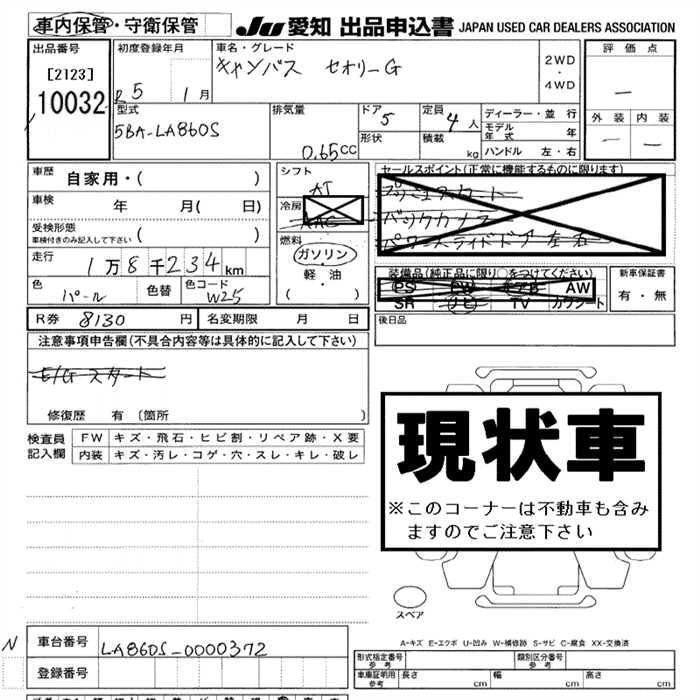 車内保管・守衛保管 JU 愛知 出品申込書 JAPAN USED CAR DEALERS ASSOCIATION
出品番号
[2123]
10032
初度登録年月
R5 1月
車名・グレード
キャンバス セオリーG
2WD
・
4WD
評価点
—
外装 内装
— —
型式
5BA-LA860S
排気量
0.65cc
ドア 5
形状
定員 4人
積載 kg
ディーラー・並行
モデル年式 年
ハンドル 左・右
車歴 自家用・( )
車検 年 月( 日)
受検形態
車検付きのみ記入して下さい ( )
走行 1万8千234km
色 パール
色替
色コード W25
シフト AT
冷房 AAC
燃料
ガソリン・
軽・油
( )
セールスポイント(正常に機能するものに限ります)
バックカメラ
パワースライドドア 左右
装備品(純正品に限り○をつけてください)
PS PW AW
SR ナビ TV カワシート
新車保証書
有・無
R券 8130円 名変期限 月 日
後日品
注意事項申告欄(不具合内容等は具体的に記入して下さい)
E/Gスタート
修復歴 有(箇所 )
検査員記入欄
FW キズ・飛石・ヒビ割・リペア跡・X要
内装 キズ・汚レ・コゲ・穴・スレ・キレ・破レ
現状車
※このコーナーは不動車も含み
ますのでご注意下さい
スペア
A-キズ E-エクボ U-凹み W-補修跡 S-サビ C-腐食 XX-交換済
N
車台番号 LA860S-0000372
登録番号
形式指定番号 参考
類別区分番号 参考
車庫証明用 参考 長さ cm 幅 cm 高さ cm